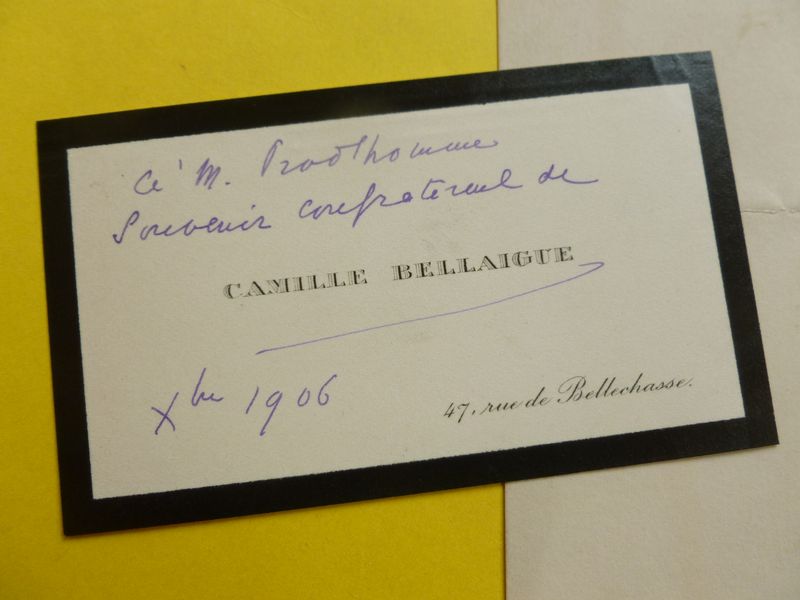 à M. Prod'homme
Souvenir confraternel de
CAMILLE BELLAIGUE
Xbre 1906
47, rue de Bellechasse.